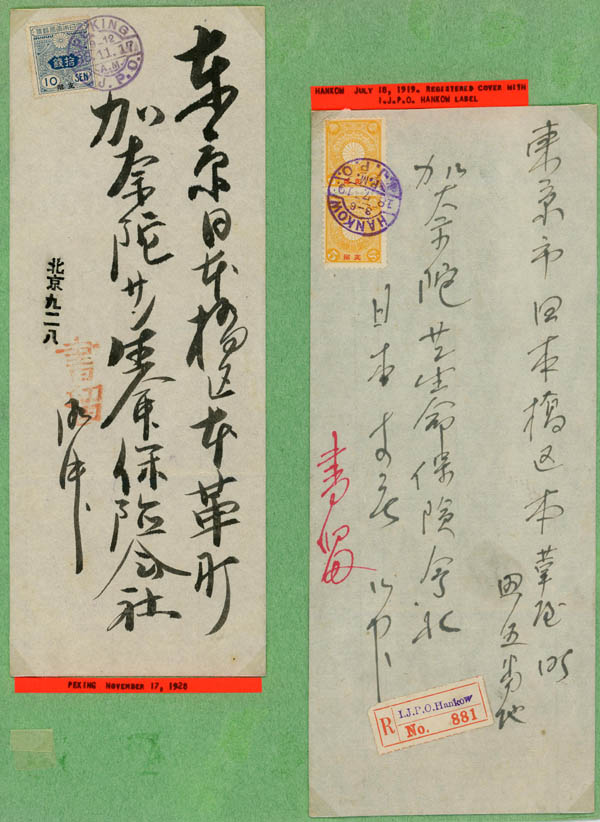 PEKING
9-12
11.17
A.M.
I.J.P.O.
拾錢
10 SEN
東京日本橋区本革町
加奈陀サン生命保险会社
御中
北京九二八
書留
PEKING NOVEMBER 17, 1920
HANKOW JULY 18, 1919. REGISTERED COVER WITH
I.J.P.O. HANKOW LABEL
HANKOW
3-6
P.m.
I.J.P.O.
東京市日本橋区本革屋町
四五番地
加奈陀サン生命保険会社
日本支店 御中
書留
R
I.J.P.O.Hankow
No. 881